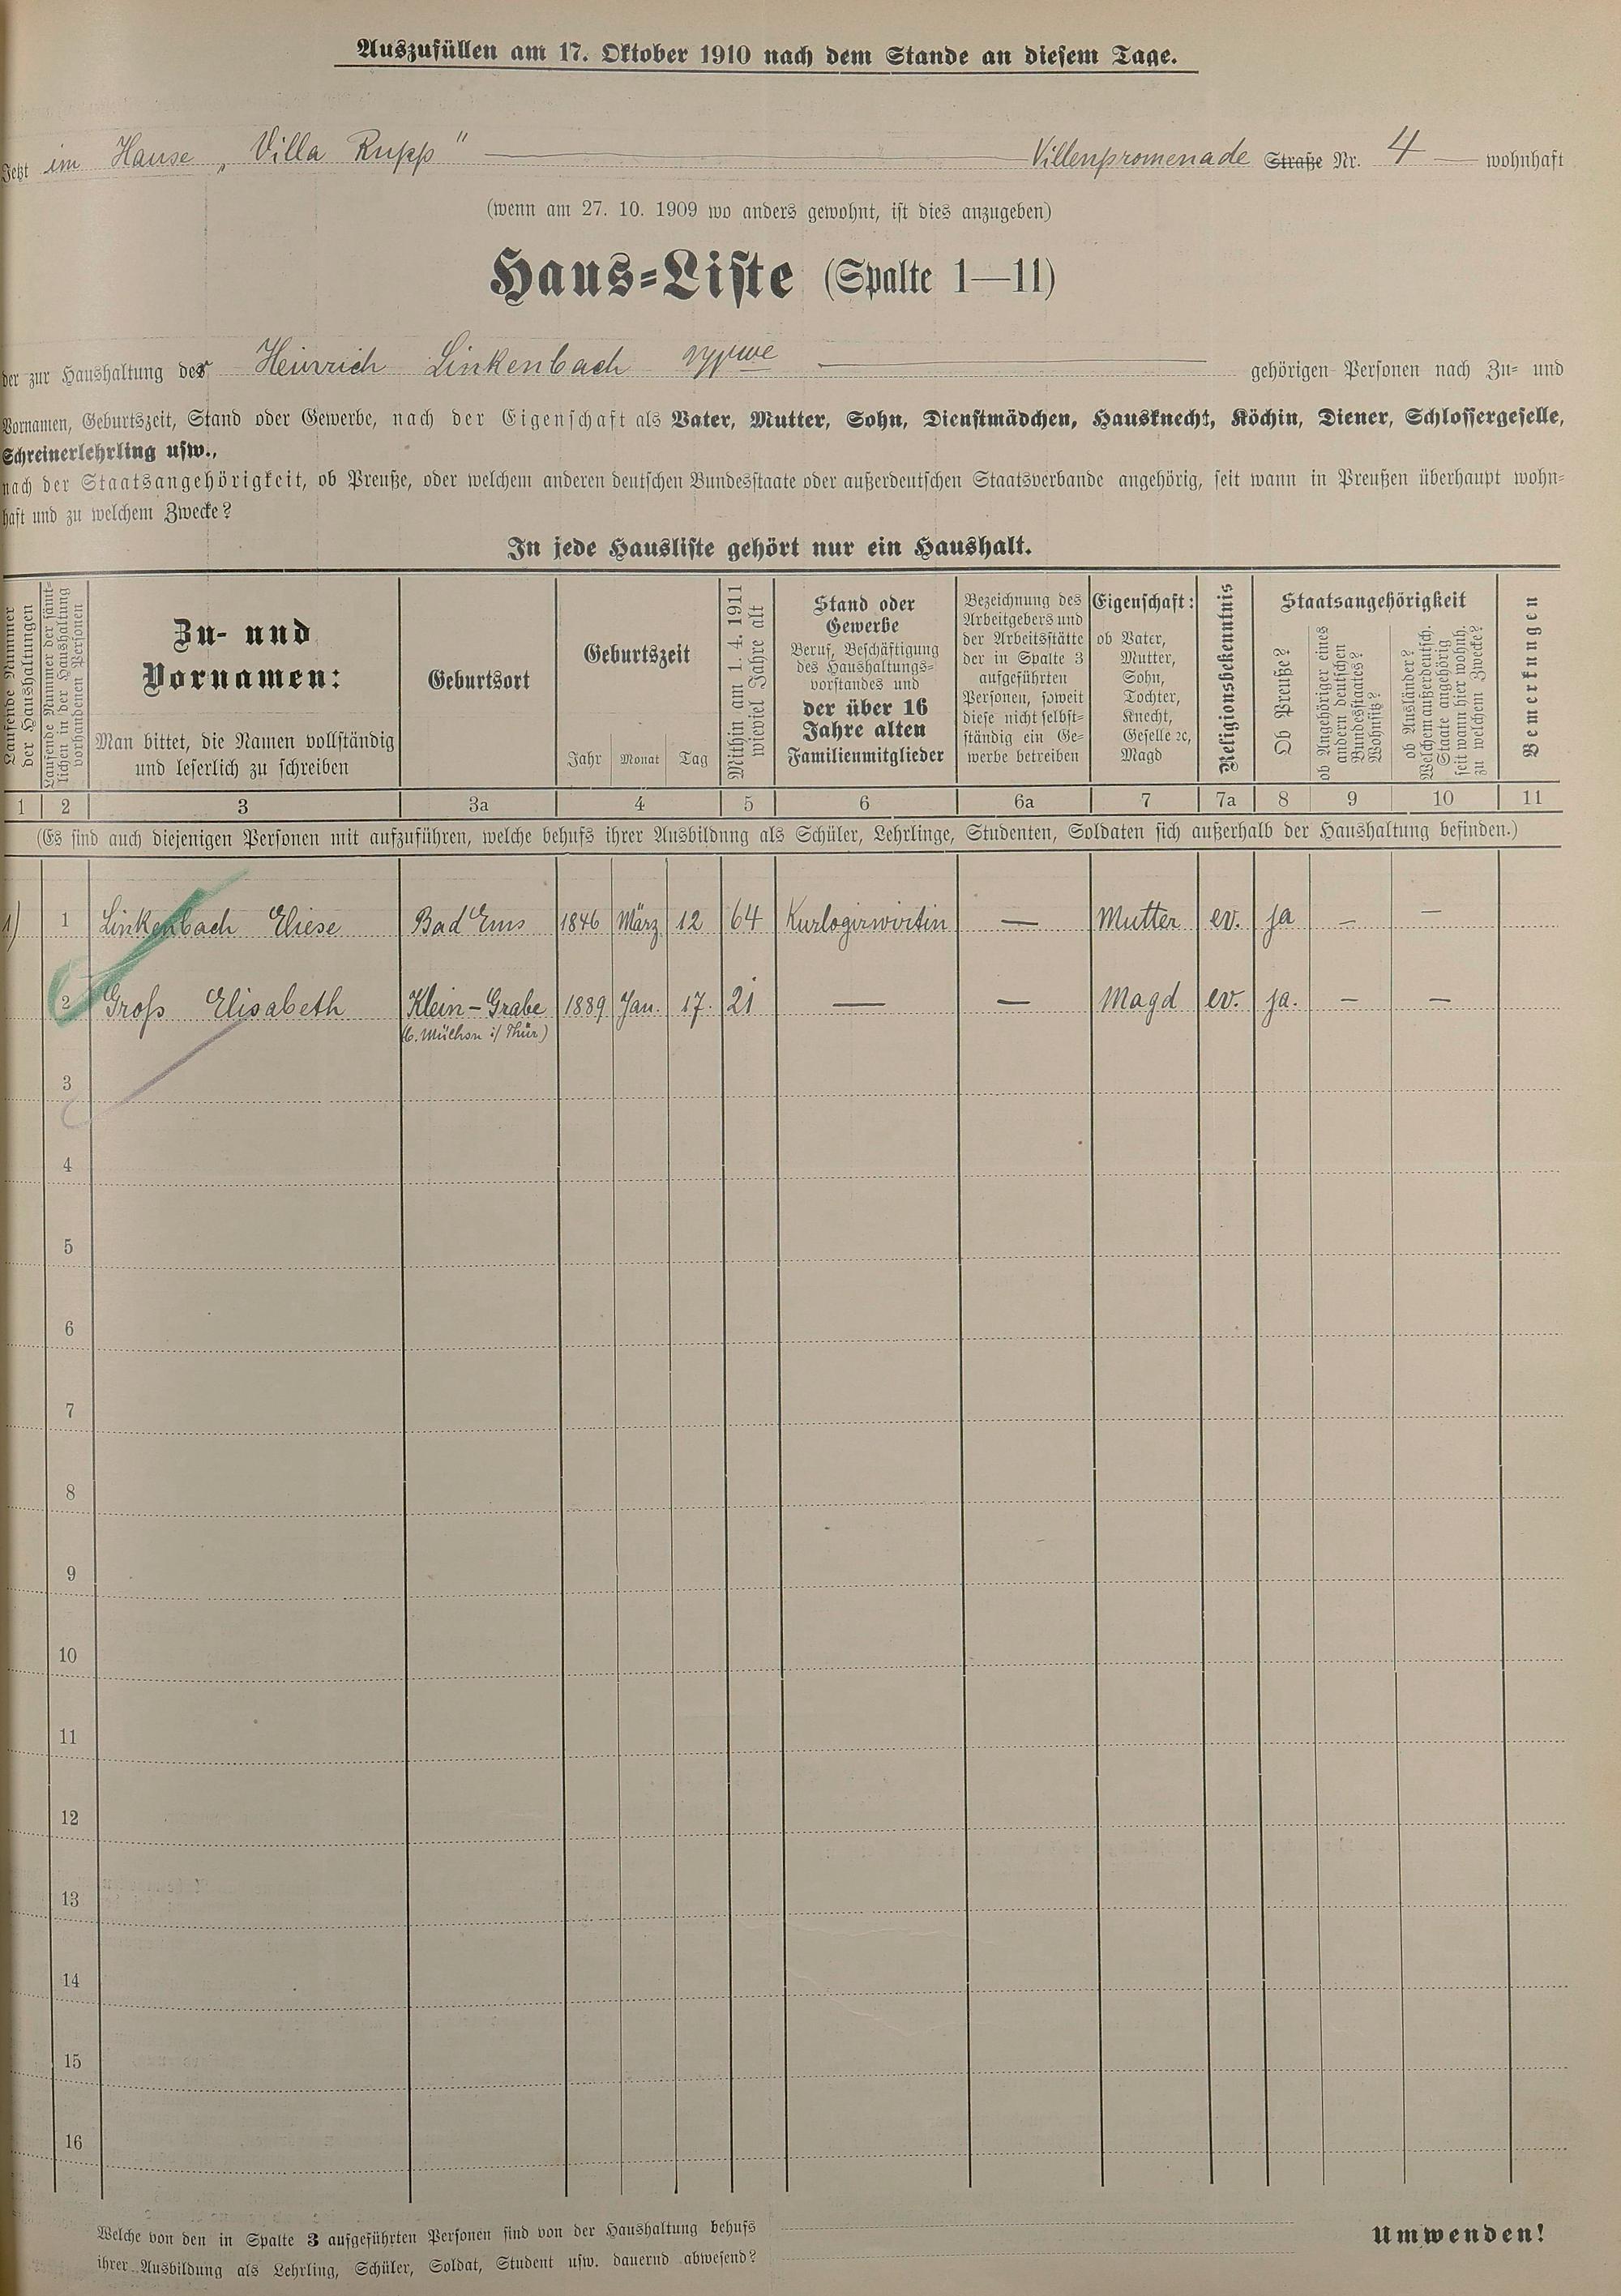 Auszufüllen am 17. Oktober 1910 nach dem Stande an diesem Tage.
Jetzt im Hause „Villa Rupp" Villenpromenade Straße Nr. 4 wohnhaft
(wenn am 27. 10. 1909 wo anders gewohnt, ist dies anzugeben)
Haus-Liste (Spalte 1—11)
der zur Haushaltung der Heinrich Linkenbach gehörigen Personen nach Zu- und
Vornamen, Geburtszeit, Stand oder Gewerbe, nach der Eigenschaft als Vater, Mutter, Sohn, Dienstmädchen, Hausknecht, Köchin, Diener, Schlossergeselle,
Schreinerlehrling usw.,
nach der Staatsangehörigkeit, ob Preuße, oder welchem anderen deutschen Bundesstaate oder außerdeutschen Staatsverbande angehörig, seit wann in Preußen überhaupt wohn-
haft und zu welchem Zwecke?
In jede Hausliste gehört nur ein Haushalt.
Laufende Nummer
der Haushaltungen
Laufende Nummer der sämt-
lichen in der Haushaltung
vorhandenen Personen
Zu- und
Vornamen:
Man bittet, die Namen vollständig
und leserlich zu schreiben
Geburtsort
Geburtszeit
Jahr Monat Tag
Mithin am 1. 4. 1911
wieviel Jahre alt
Stand oder
Gewerbe
Beruf, Beschäftigung
des Haushaltungs-
vorstandes und
der über 16
Jahre alten
Familienmitglieder
Bezeichnung des
Arbeitgebers und
der Arbeitsstätte
der in Spalte 3
aufgeführten
Personen, soweit
diese nicht selbst-
ständig ein Ge-
werbe betreiben
Eigenschaft:
ob Vater,
Mutter,
Sohn,
Tochter,
Knecht,
Geselle ꝛc,
Magd
Religionsbekenntnis
Staatsangehörigkeit
Ob Preuße?
ob Angehöriger eines
andern deutschen
Bundesstaates?
Wohnsitz?
ob Ausländer?
Welchem außerdeutsch.
Staate angehörig
seit wann hier wohnh.
zu welchem Zwecke?
Bemerkungen
1 2 3 3a 4 5 6 6a 7 7a 8 9 10 11
(Es sind auch diejenigen Personen mit aufzuführen, welche behufs ihrer Ausbildung als Schüler, Lehrlinge, Studenten, Soldaten sich außerhalb der Haushaltung befinden.)
1) 1 Linkenbach Eliese Bad Ems 1846 März 12 64 Kurlogirwirtin — Mutter ev. ja — —
2 Groß Elisabeth Klein-Grabe 1889 Jan. 17. 21 — — Magd ev. ja. — —
(b. Mülhsn i/ Thür.)
3
4
5
6
7
8
9
10
11
12
13
14
15
16
Welche von den in Spalte 3 aufgeführten Personen sind von der Haushaltung behufs
ihrer Ausbildung als Lehrling, Schüler, Soldat, Student usw. dauernd abwesend?
Umwenden!